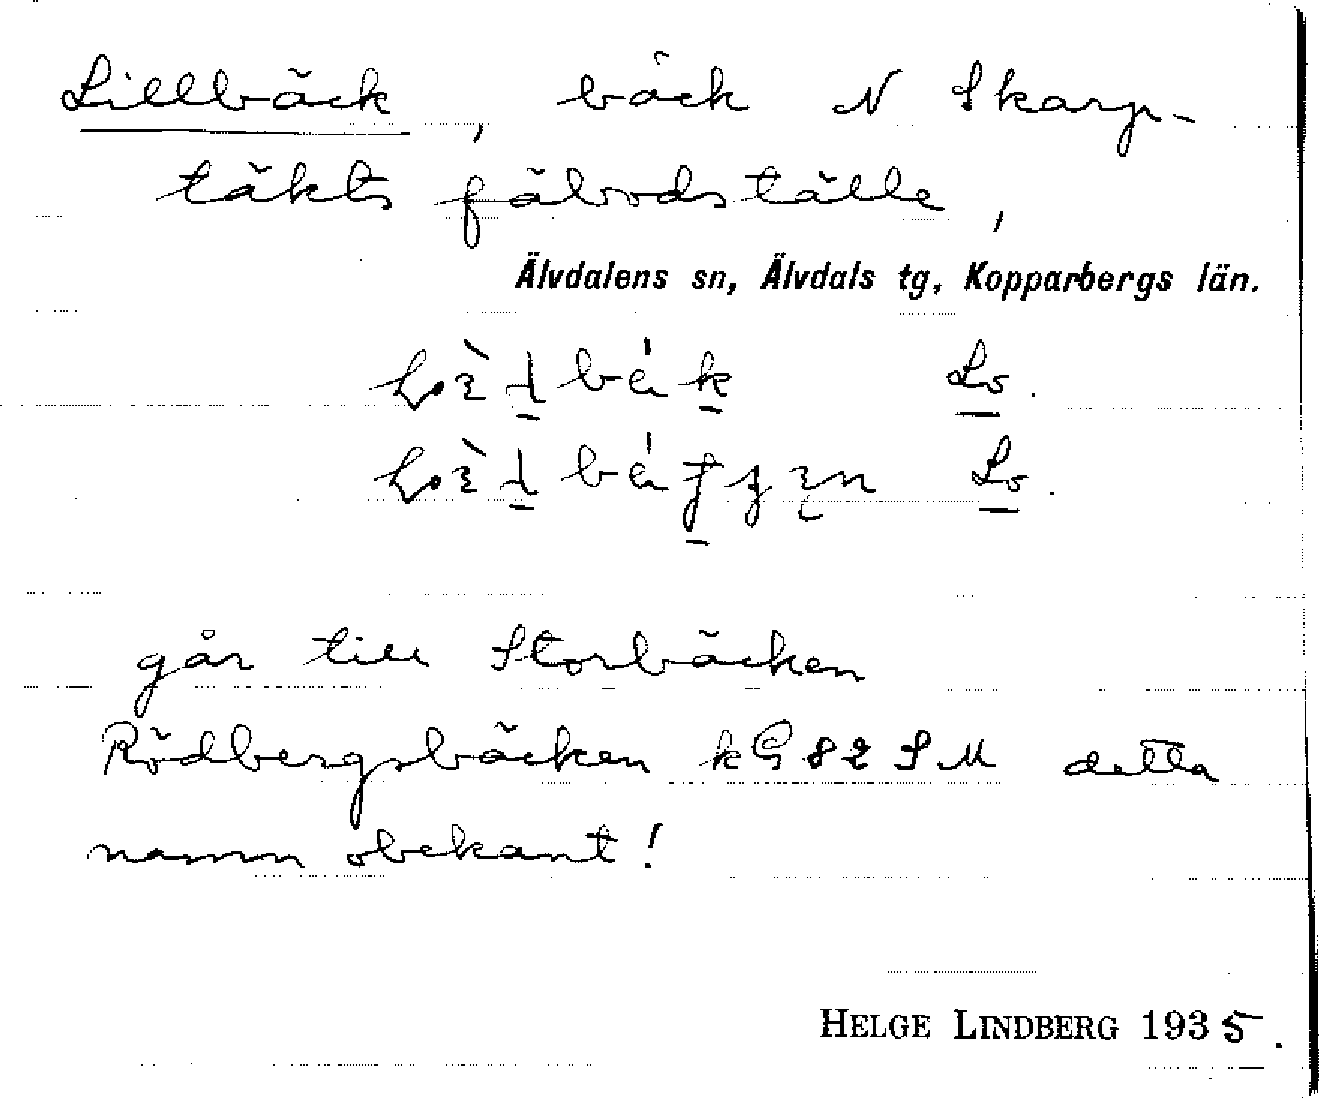 Lillbäck, bäck N Skarp-
täkts fäbodställe,
Älvdalens sn, Älvdals tg, Kopparbergs län.
Lo.
Lo.
går till Storbäcken
Rödbergsbäcken kG 82 SM detta
namn obekant!
HELGE LINDBERG 1935.